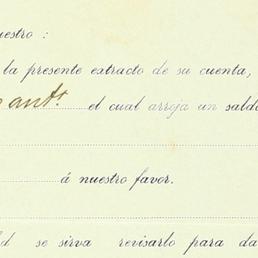 uestro :
la presente extracto de su cuenta,
ant.ʳ el cual arroja un sald
á nuestro favor.
se sirva revisarlo para da